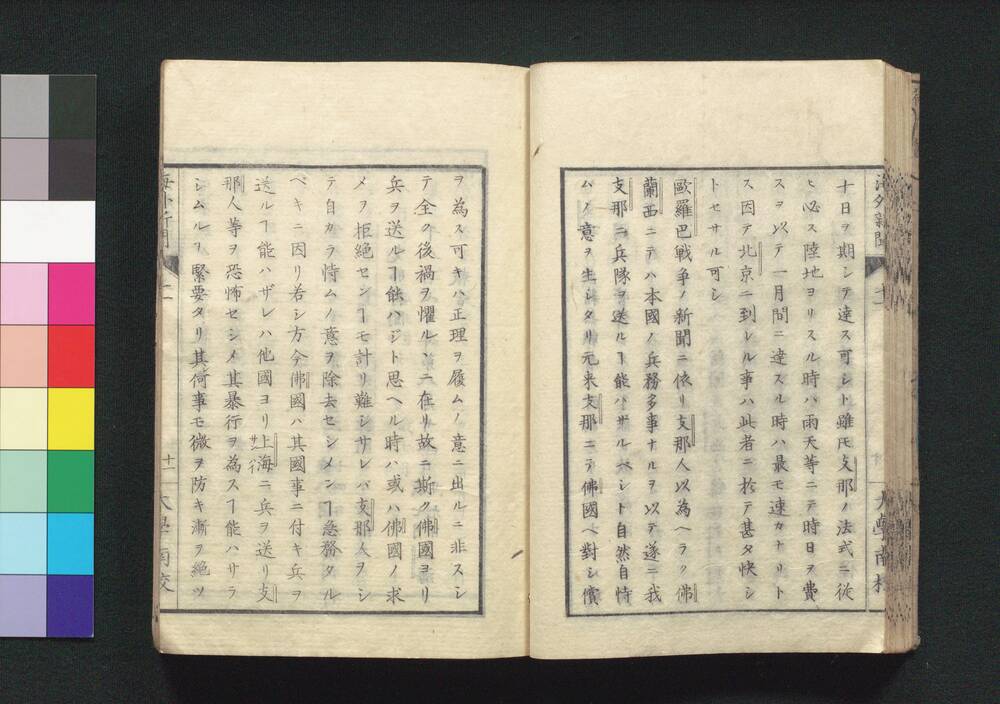 十日ヲ期シテ達ス可シト雖𪜈支那ノ法式ニ従
ヒ必ス陸地ヨリスル時ハ雨天等ニテ時日ヲ費
スヲ以テ一月間ニ達スル時ハ最モ速カナリト
ス因テ北京ニ到レル事ハ此者ニ於テ甚タ快シ
トセサル可シ
歐羅巴戦争ノ新聞ニ依リ支那人以為ヘラク佛
蘭西ニテハ本國ノ兵務多事ナルヲ以テ遂ニ我
支那ニ兵隊ヲ送ルヿ能ハザルベシト自然自恃
ムノ意ヲ生シタリ元来支那ニテ佛國ヘ對シ償
ヲ為ス可キハ正理ヲ履ムノ意ニ出ルニ非スシ
テ全ク後禍ヲ懼ルヽニ在リ故ニ斯ク佛國ヨリ
兵ヲ送ルヿ能ハジト思ヘル時ハ或ハ佛國ノ求
メヲ拒絶センヿモ計リ難シサレバ支那人ヲシ
テ自カラ恃ムノ意ヲ除去セシメンヿ急務タル
ベキニ因リ若シ方今佛國ハ其國事ニ付キ兵ヲ
送ルヿ能ハザレハ他國ヨリ上海ニ兵ヲ送リ支
那人等ヲ恐怖セシメ其暴行ヲ為スヿ能ハサラ
シムルヲ緊要タリ其何事モ微ヲ防キ漸ヲ絶ツ
海外新聞
十一
大學南校